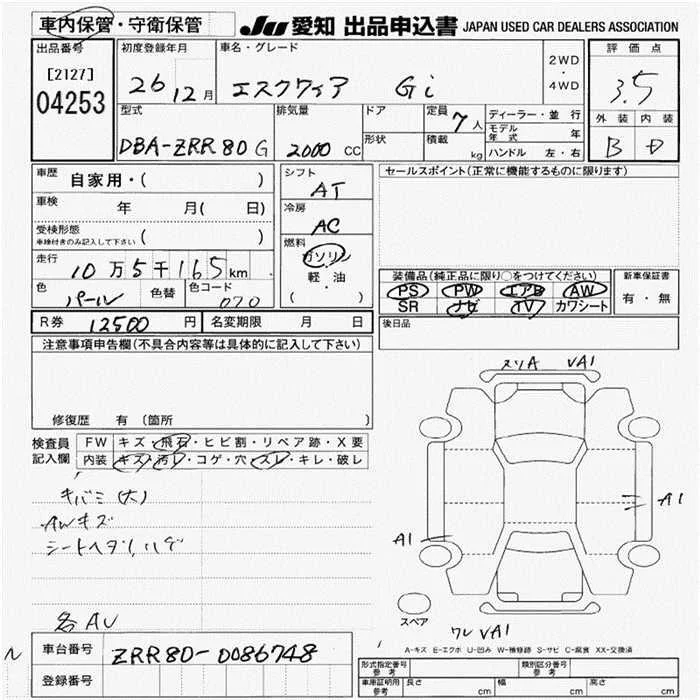 車内保管・守衛保管
JU 愛知 出品申込書 JAPAN USED CAR DEALERS ASSOCIATION
出品番号
[2127]
04253
初度登録年月
26 12月
車名・グレード
エスクワィア Gi
2WD
・
4WD
評価点
3.5
外装 内装
B D
型式
DBA-ZRR80G
排気量
2000 CC
ドア
形状
定員 7人
積載 kg
ディーラー・並行
モデル年式 年
ハンドル 左・右
車歴 自家用・( )
車検 年 月( 日)
受検形態
車検付きのみ記入して下さい ( )
走行
10万5千165km
色 パール 色替 色コード 070
シフト
AT
冷房
AC
燃料
ガソリン
軽・油
( )
セールスポイント(正常に機能するものに限ります)
装備品(純正品に限り○をつけてください)
PS PW エアB AW
SR ナビ TV カワシート
新車保証書
有・無
R券 12500円 名変期限 月 日
後日品
注意事項申告欄(不具合内容等は具体的に記入して下さい)
修復歴 有 (箇所 )
検査員記入欄
FW キズ・飛石・ヒビ割・リペア跡・X要
内装 キズ・汚レ・コゲ・穴・スレ・キレ・破レ
キバミ(大)
AWキズ
シートヘタリ,ハゲ
各AU
スリA VA1
A1
A1
スペア
ワレ VA1
A-キズ E-エクボ U-凹み W-補修跡 S-サビ C-腐食 XX-交換済
車台番号 ZRR80-0086748
登録番号
型式指定番号 参考
類別区分番号 参考
車庫証明用 参考 長さ cm 幅 cm 高さ cm